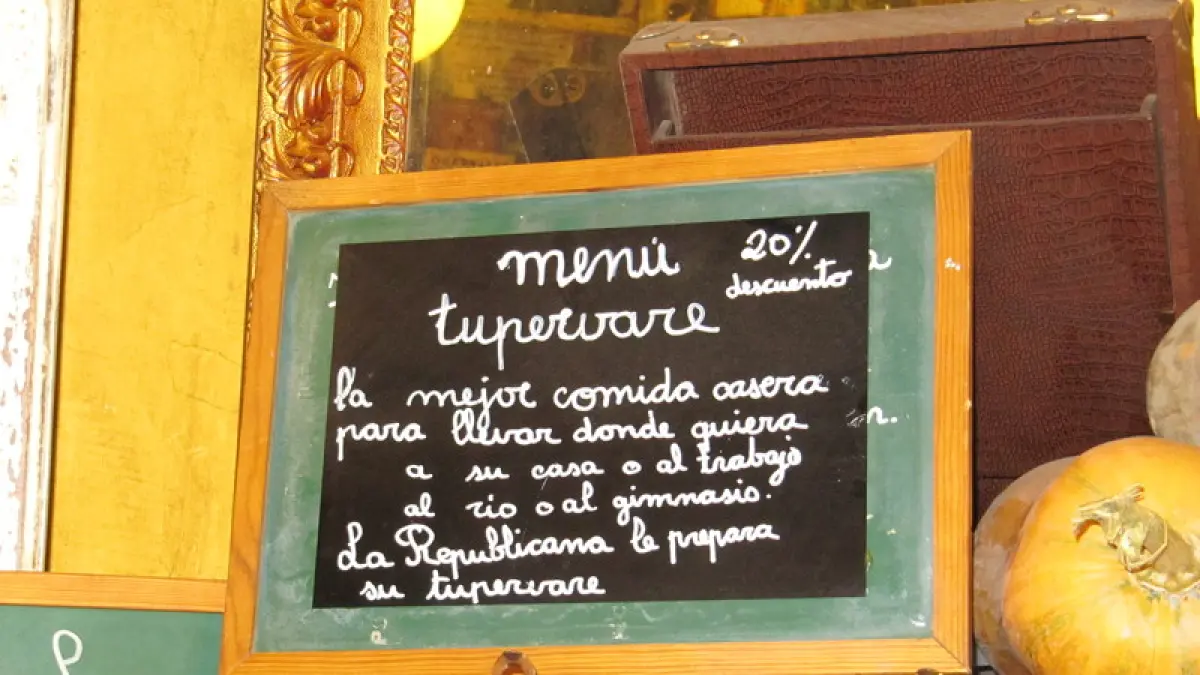 menú
20%
descuento
tupervare
la mejor comida casera
para llevar donde quiera
a su casa o al trabajo
al rio o al gimnasio.
La Republicana le prepara
su tupervare
P